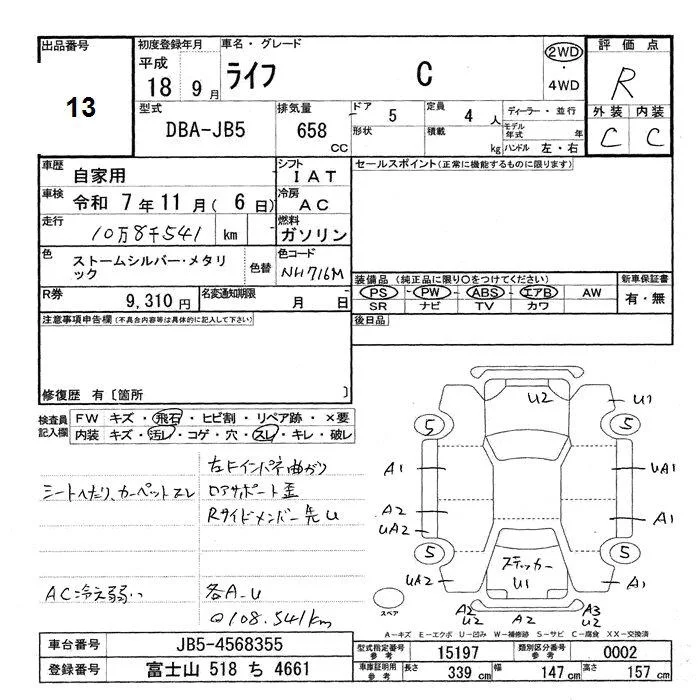 出品番号
13
初度登録年月
平成
18 9月
車名・グレード
ライフ C
2WD
・
4WD
評価点
R
型式
DBA-JB5
排気量
658 CC
ドア 5
形状
定員 4 人
積載 kg
ディーラー・並行
モデル年式 年
ハンドル 左・右
外装 内装
C C
車歴 自家用
シフト IAT
車検 令和 7年 11月( 6日)
冷房 AC
走行 10万8千541 km
燃料 ガソリン
色 ストームシルバー・メタリック
色替
色コード NH716M
R券 9,310円
名変通知期限 月 日
セールスポイント(正常に機能するものに限ります)
装備品 (純正品に限り○をつけてください)
新車保証書
PS PW ABS エアB AW
有・無
SR ナビ TV カワ
後日品
注意事項申告欄(不具合内容等は具体的に記入して下さい)
修復歴 有〔箇所 〕
検査員記入欄
FW キズ・飛石・ヒビ割・リペア跡・×要
内装 キズ・汚レ・コゲ・穴・スレ・キレ・破レ
左Fインパネ曲がり
シートへたり、カーペットスレ
ロアサポート歪
Rサイドメンバー先U
AC冷え弱い
各A-U
108.541km
U2
U1
5
5
A1
UA1
A2
UA2
A1
5
5
ステッカー
U1
UA2
A1
スペア
A2
U2
A2
A3
U2
A-キズ E-エクボ U-凹み W-補修跡 S-サビ C-腐食 XX-交換済
車台番号 JB5-4568355
登録番号 富士山 518 ち 4661
型式指定番号 参考 15197
類別区分番号 参考 0002
車庫証明用 参考
長さ 339 cm
幅 147 cm
高さ 157 cm